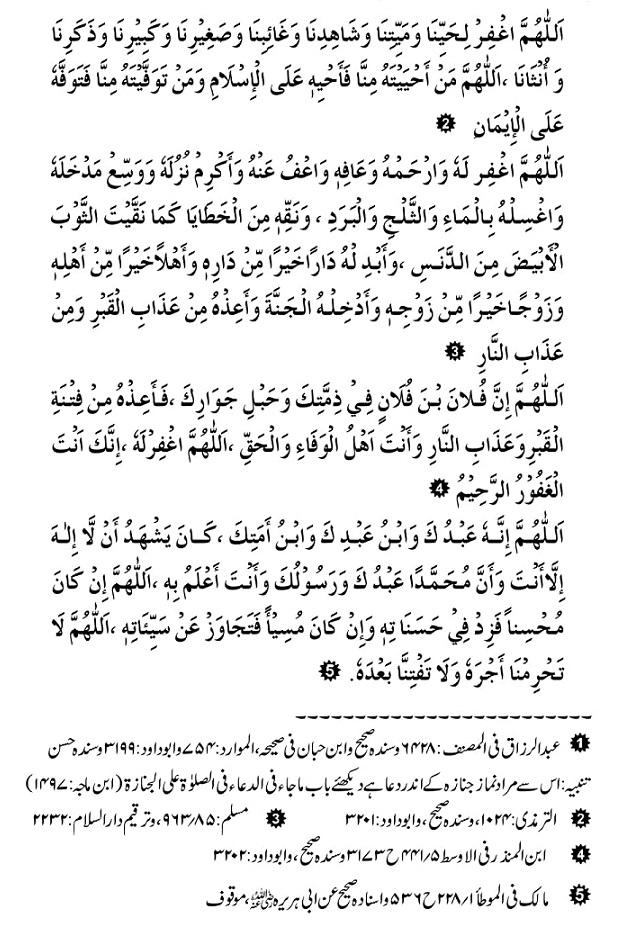 اَللّٰهُمَّ اغْفِرْ لِحَيِّنَا وَمَيِّتِنَا وَشَاهِدِنَا وَغَائِبِنَا وَصَغِيْرِنَا وَكَبِيْرِنَا وَذَكَرِنَا
وَ أُنْثَانَا ،اَللّٰهُمَّ مَنْ أَحْيَيْتَهُ مِنَّا فَأَحْيِهٖ عَلَى الْإِسْلَامِ وَمَنْ تَوَفَّيْتَهُ مِنَّا فَتَوَفَّهُ
عَلَى الْإِيْمَانِ ❷
اَللّٰهُمَّ اغْفِر لَهُ وَارْحَمْهُ وَعَافِهٖ وَاعْفُ عَنْهُ وَأَكْرِمْ نُزُلَهُ وَوَسِّعْ مَدْخَلَهُ
وَاغْسِلْهُ بِالْمَاءِ وَالثَّلْجِ وَالْبَرَدِ ، وَنَقِّهٖ مِنَ الْخَطَايَا كَمَا نَقَّيْتَ الثَّوْبَ
الْأَبْيَضَ مِنَ الدَّنَسِ ،وَأَبْدِ لْهُ دَارًا خَيْرًا مِّنْ دَارِهٖ وَأَهْلاً خَيْرًا مِّنْ أَهْلِهٖ
وَزَوْجًا خَيْرًا مِّنْ زَوْجِهٖ وَأَدْخِلْهُ الْجَنَّةَ وَأَعِذْهُ مِنْ عَذَابِ الْقَبْرِ وَمِنْ
عَذَابِ النَّارِ ❸
اَللّٰهُمَّ إِنَّ فُلَانَ بْنَ فُلَانٍ فِيْ ذِمَّتِكَ وَحَبْلِ جَوَارِكَ ،فَأَعِذْهُ مِنْ فِتْنَةِ
الْقَبْرِ وَعَذَابِ النَّارِ وَأَنْتَ أَهْلُ الْوَفَاءِ وَالْحَقِّ ،اَللّٰهُمَّ اغْفِرْلَهُ ،إِنَّكَ اَنْتَ
الْغَفُوْرُ الرَّحِيْمُ ❹
اَللّٰهُمَّ إِنَّهُ عَبْدُ كَ وَابْنُ عَبْدِ كَ وَابْنُ أَمَتِكَ ،كَانَ يَشْهَدُ أَنْ لَّا إِلٰهَ
إِلَّا أَنْتَ وَأَنَّ مُحَمَّدًا عَبْدُ كَ وَرَسُوْلُكَ وَأَنْتَ أَعْلَمُ بِهٖ ،اَللّٰهُمَّ إِنْ كَانَ
مُحْسِناً فَزِدْ فِيْ حَسَنَا تِهٖ وَإِنْ كَانَ مُسِيْأً فَتَجَاوَزْ عَنْ سَيِّئَاتِهٖ ،اَللّٰهُمَّ لَا
تَحْرِمْنَا أَجْرَهُ وَلَا تَفْتِنَّا بَعْدَهُ. ❺
❶ عبدالرزاق فی المصنف: ۶۴۲۸ وسندہ صحیح وابن حبان فی صحیحہ، الموارد: ۷۵۴ وابوداود: ۳۱۹۹ وسندہ حسن
تنبیہ: اس سے مراد نماز جنازہ کے اندر دعا ہے دیکھئے باب ماجاء فی الدعاء فی الصلوٰۃ علی الجنازۃ (ابن ماجہ: ۱۴۹۷)
❷ الترمذی: ۱۰۲۴، وسندہ صحیح، وابوداود: ۳۲۰۱ ❸ مسلم: ۹۶۳/۸۵، وترقیم دارالسلام: ۲۲۳۲
❹ ابن المنذر فی الاوسط ۴۴۱/۵ ح ۳۱۷۳ وسندہ صحیح، وابوداود: ۳۲۰۲
❺ مالک فی الموطأ ۲۲۸/۱ ح ۵۳۶ واسنادہ صحیح عن ابی ہریرہ رضی اللہ عنہ، موقوف